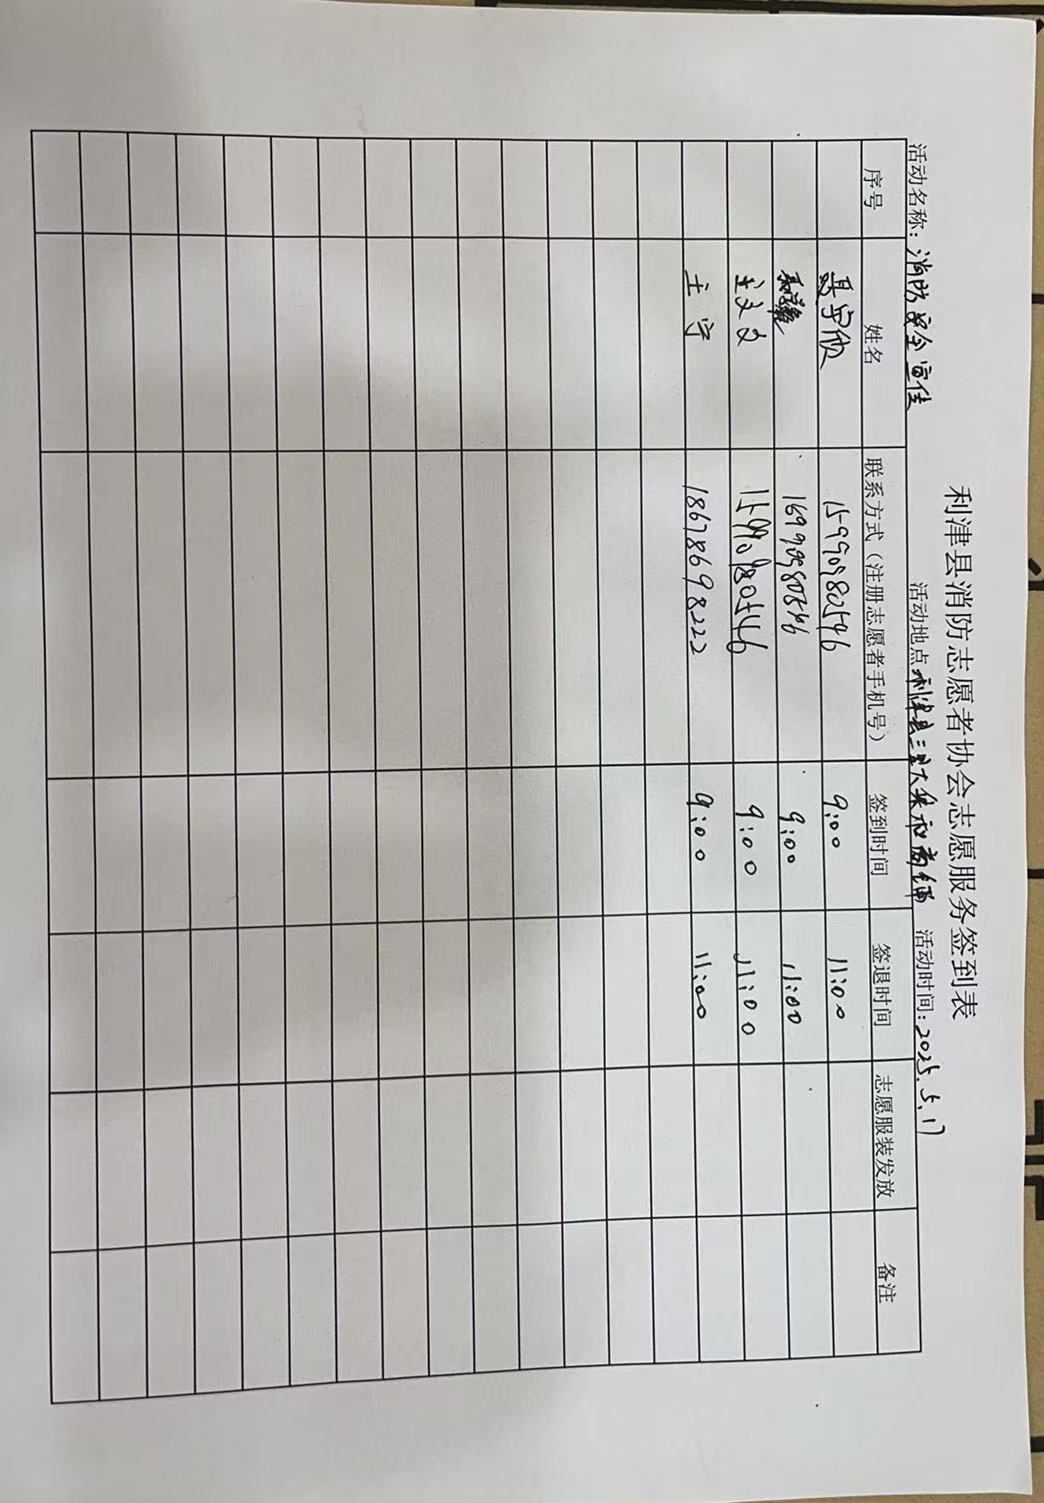 利津县消防志愿者协会志愿服务签到表
活动名称：消防安全宣传 活动地点：利津县三里大集和商铺 活动时间：2025.5.17
序号 姓名 联系方式（注册志愿者手机号） 签到时间 签退时间 志愿服装发放 备注
15990980546 9:00 11:00
9:00 11:00
王文文 15990980546 9:00 11:00
王宁 18678698222 9:00 11:00